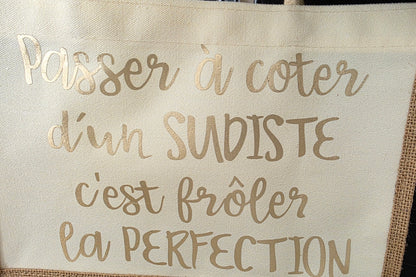 Passer à coter
d'un SUDISTE
c'est frôler
la PERFECTION